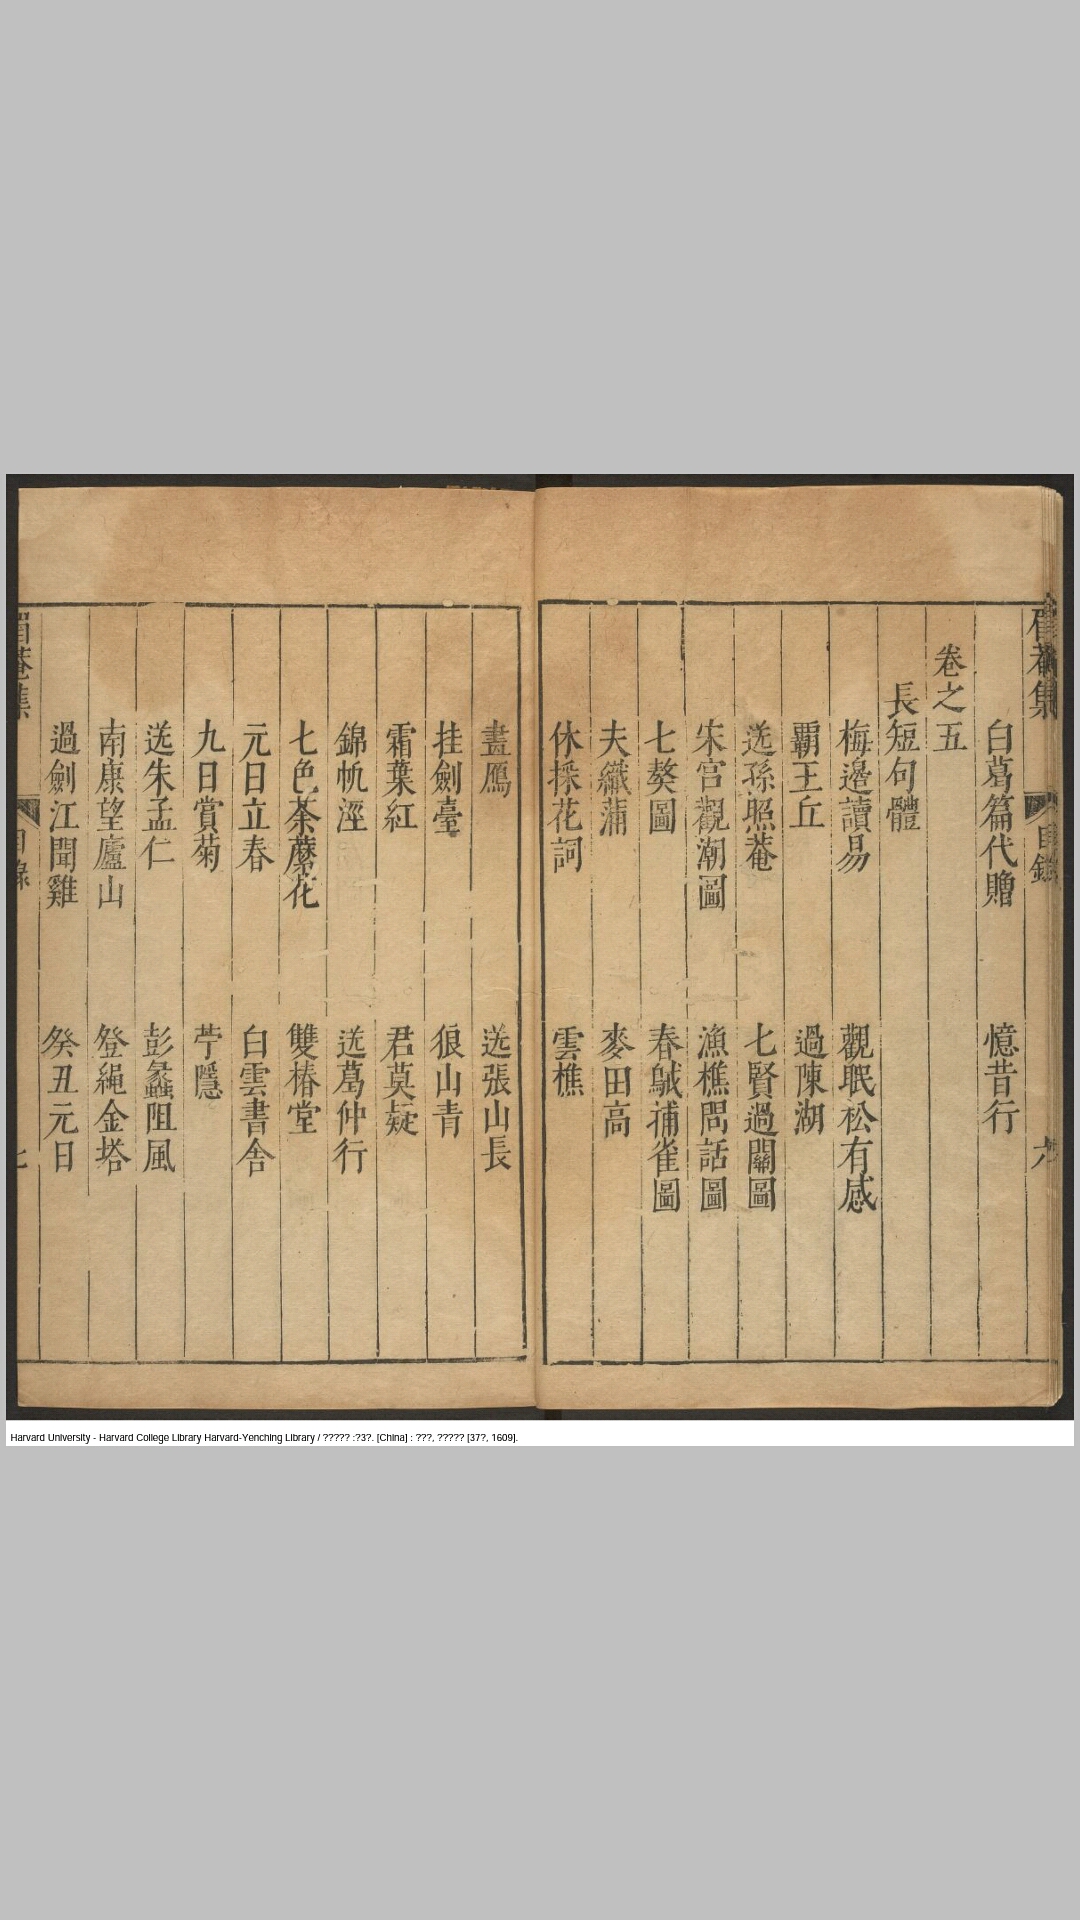 白葛篇代贈 憶昔行
卷之五
長短句體
梅邊讀易 觀眠松有感
霸王丘 過陳湖
送孫照菴 七賢過關圖
宋宮觀潮圖 漁樵問話圖
七獒圖 春鵮捕雀圖
夫織蒲 麥田高
休採花詞 雲樵
畫鴈 送張山長
挂劍臺 狼山青
霜葉紅 君莫疑
錦帆涇 送葛仲行
七色荼蘼花 雙椿堂
元日立春 白雲書舍
九日賞菊 苧隱
送朱孟仁 彭蠡阻風
南康望廬山 登繩金塔
過劍江聞雞 癸丑元日
Harvard University - Harvard College Library Harvard-Yenching Library / ????? :?3?. [China] : ???, ????? [37?, 1609].